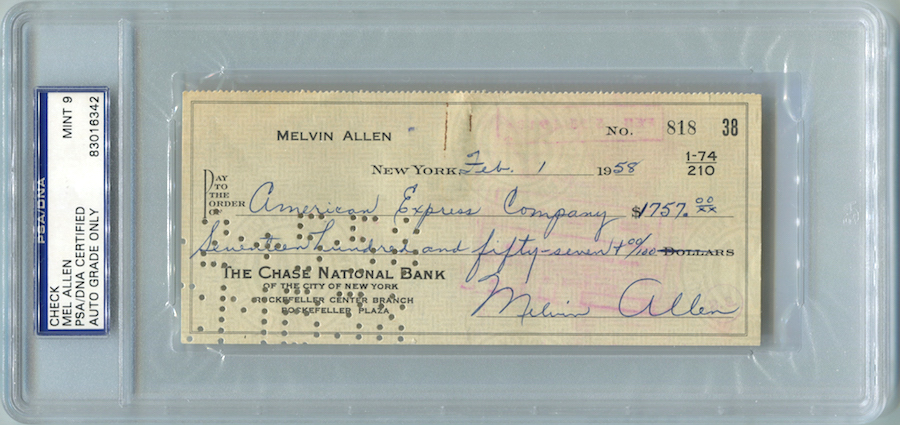 CHECK
MEL ALLEN
PSA/DNA CERTIFIED
AUTO GRADE ONLY
MINT 9
83016342
PSA/DNA
MELVIN ALLEN
No. 818 38
NEW YORK, Feb. 1 1958
1-74
210
PAY
TO
THE
ORDER
OF American Express Company $1757. 00/xx
Seventeen hundred and fifty-seven + 00/100 DOLLARS
THE CHASE NATIONAL BANK
OF THE CITY OF NEW YORK
ROCKEFELLER CENTER BRANCH
ROCKEFELLER PLAZA
Melvin Allen